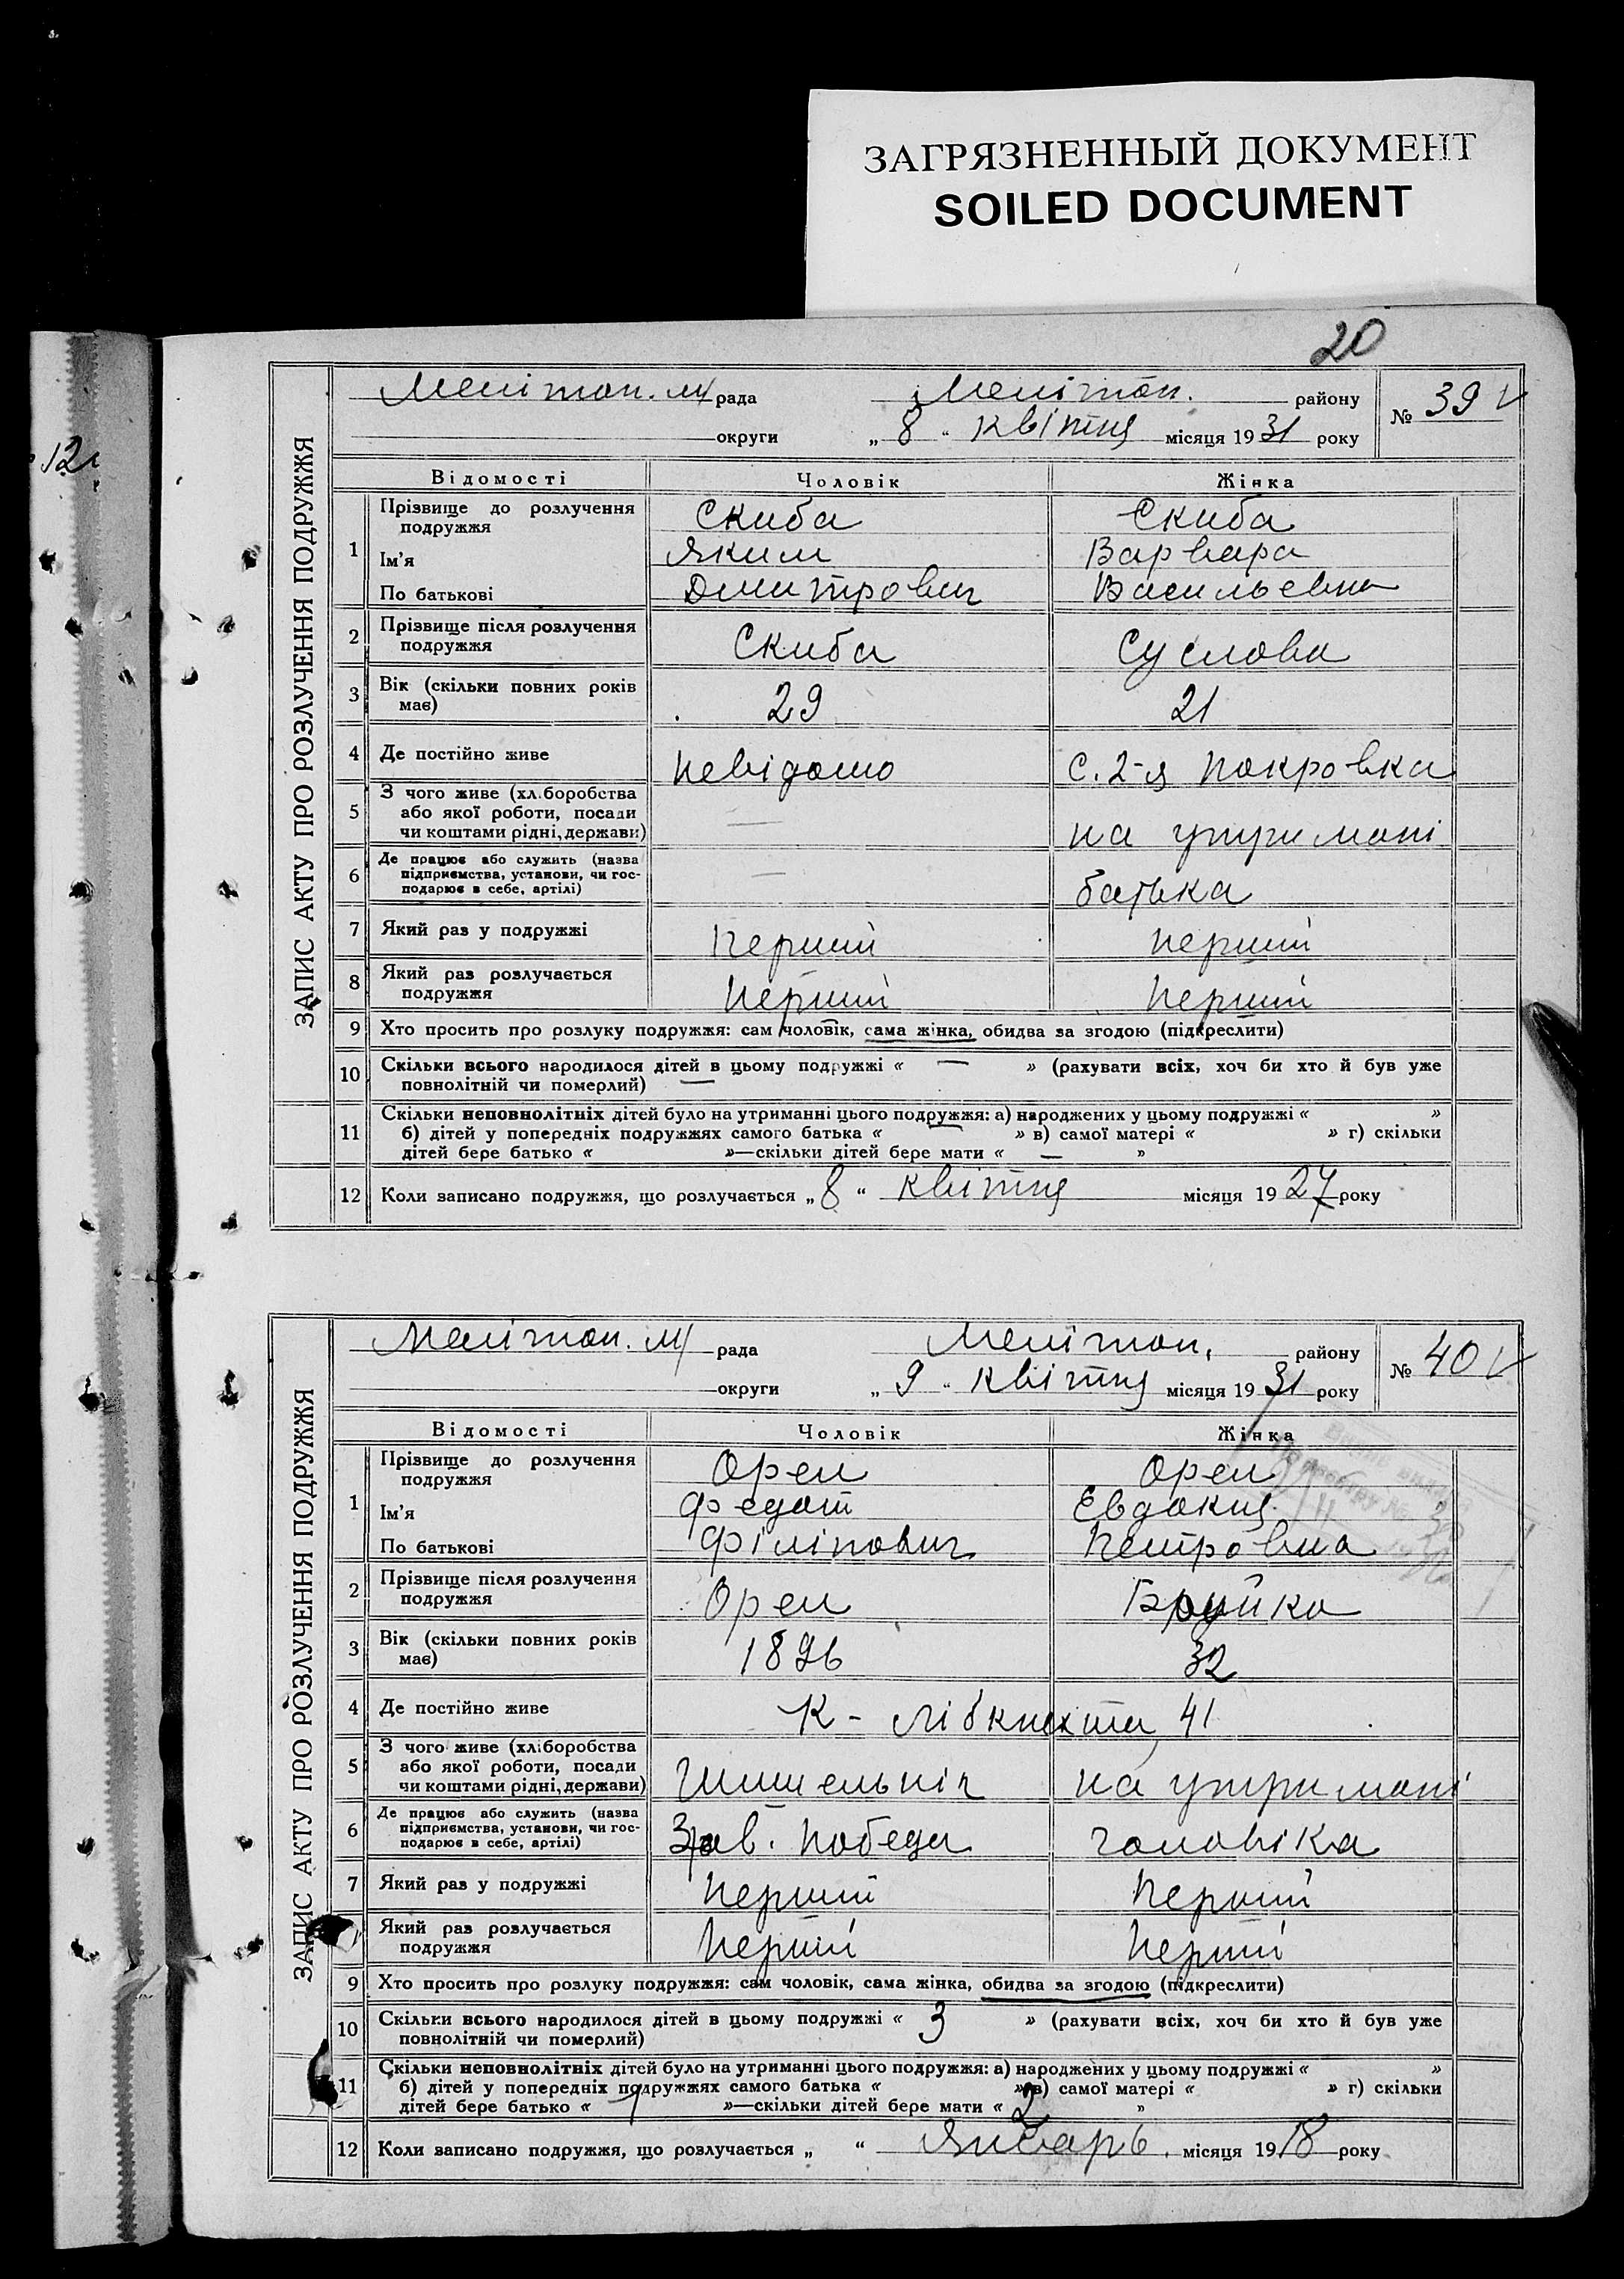 ЗАГРЯЗНЕННЫЙ ДОКУМЕНТ
SOILED DOCUMENT
20
12
ЗАПИС АКТУ ПРО РОЗЛУЧЕННЯ ПОДРУЖЖЯ
Мелітоп. м/ рада Мелітоп. району № 39 V
округи „ 8 “ квітня місяця 1931 року
Відомості Чоловік Жінка
1 Прізвище до розлучення подружжя Скиба Скиба
Ім'я Яким Варвара
По батькові Дмитрович Васильевна
2 Прізвище після розлучення подружжя Скиба Суслова
3 Вік (скільки повних років має) 29 21
4 Де постійно живе невідомо с. 2-я Покровка
5 З чого живе (хл.боробства або якої роботи, посади чи коштами рідні, держави) — на утримані
6 Де працює або служить (назва підприємства, установи, чи господарює в себе, артілі) — батька
7 Який раз у подружжі перший перший
8 Який раз розлучається подружжя перший перший
9 Хто просить про розлуку подружжя: сам чоловік, сама жінка, обидва за згодою (підкреслити)
10 Скільки всього народилося дітей в цьому подружжі « — » (рахувати всіх, хоч би хто й був уже
повнолітній чи померлий) —
11 Скільки неповнолітніх дітей було на утриманні цього подружжя: а) народжених у цьому подружжі « »
б) дітей у попередніх подружжях самого батька « — » в) самої матері « » г) скільки
дітей бере батько « »—скільки дітей бере мати « — »
12 Коли записано подружжя, що розлучається „ 8 “ квітня місяця 1927 року
ЗАПИС АКТУ ПРО РОЗЛУЧЕННЯ ПОДРУЖЖЯ
Меліпоп. м/ рада Меліпоп. району № 40 V
округи „ 9 “ квітня місяця 1931 року
Відомості Чоловік Жінка
1 Прізвище до розлучення подружжя Орел Орел
Ім'я Федот Евдокия
По батькові Філіпович Петровна
2 Прізвище після розлучення подружжя Орел
3 Вік (скільки повних років має) 1896 32
4 Де постійно живе К - Лібкнехта 41
5 З чого живе (хл.боробства або якої роботи, посади чи коштами рідні, держави) на утримані
6 Де працює або служить (назва підприємства, установи, чи господарює в себе, артілі) Победа чоловіка
7 Який раз у подружжі перший перший
8 Який раз розлучається подружжя перший перший
9 Хто просить про розлуку подружжя: сам чоловік, сама жінка, обидва за згодою (підкреслити)
10 Скільки всього народилося дітей в цьому подружжі « 3 » (рахувати всіх, хоч би хто й був уже
повнолітній чи померлий)
11 Скільки неповнолітніх дітей було на утриманні цього подружжя: а) народжених у цьому подружжі « »
б) дітей у попередніх подружжях самого батька « » в) самої матері « » г) скільки
дітей бере батько « 1 »—скільки дітей бере мати « 2 »
12 Коли записано подружжя, що розлучається „ “ Январь місяця 1918 року